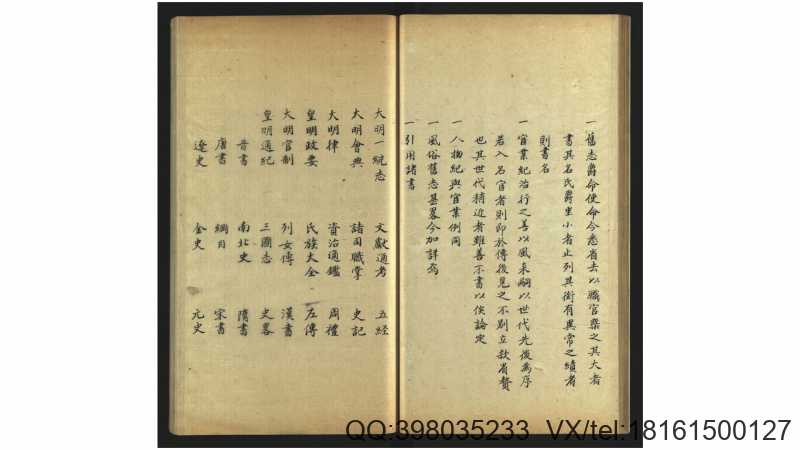 一舊志爵命使命今悉省去以職官槩之其大者
書其名氏爵里小者止列其銜有異常之績者
則書名
一官業紀治行之善以風來嗣以世代先後為序
若入名宦者則即於傳後見之不別立款省贅
也其世代稍近者雖善不書以俟論定
一人物紀與官業例同
一風俗舊志甚畧今加詳焉
一引用諸書
大明一統志 文獻通考 五經
大明會典 諸司職掌 史記
大明律 資治通鑑 周禮
皇明政要 氏族大全 左傳
大明官制 列女傳 漢書
皇明通紀 三國志 史畧
晉書 南北史 隋書
唐書 綱目 宋書
遼史 金史 元史
QQ:398035233 VX/tel:18161500127